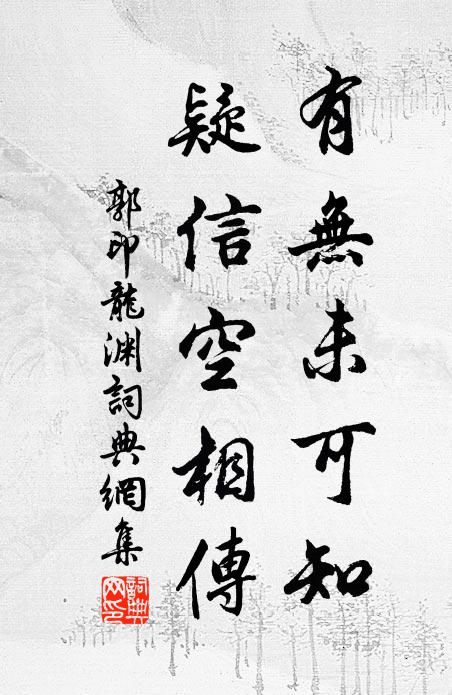 有無未可知
疑信空相傳
郭印龍渊詞典網集
詞典网印